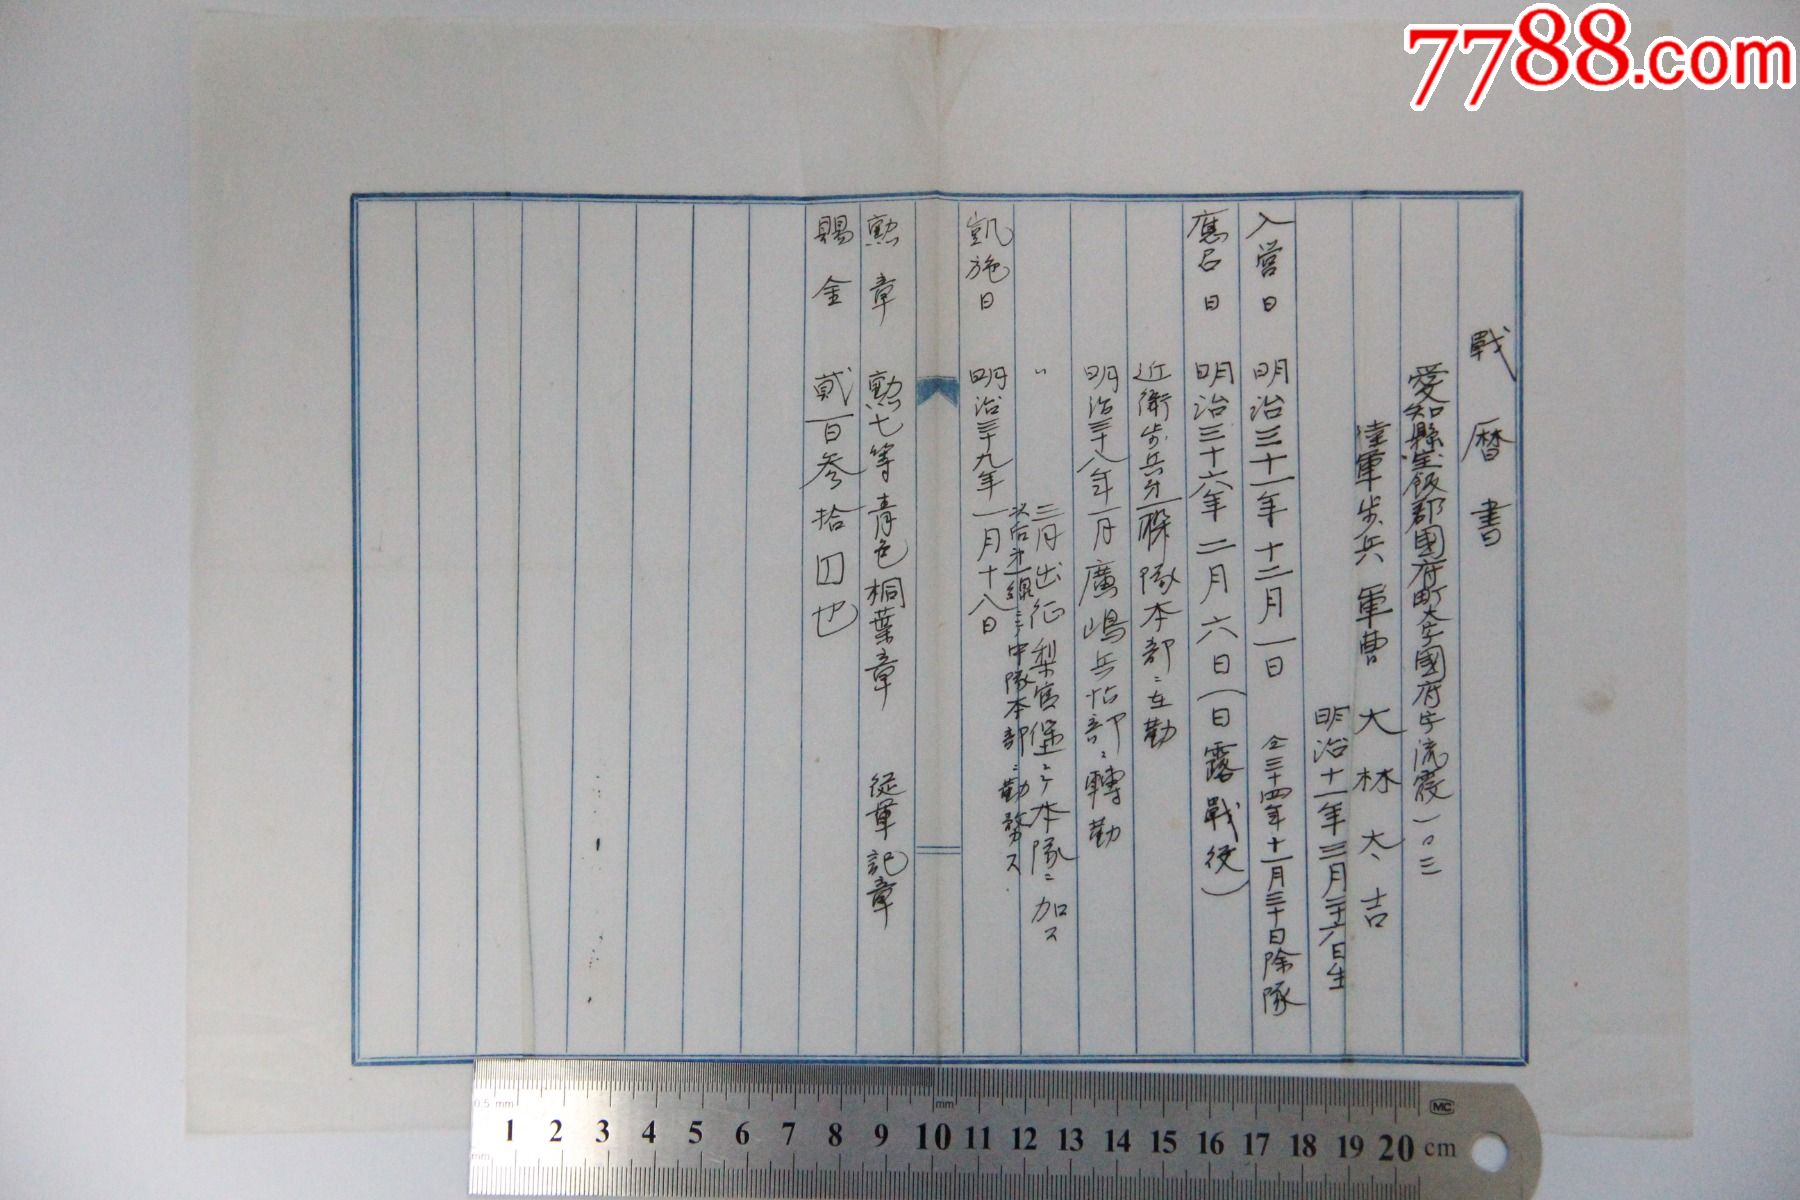 7788.com
戰暦書
愛知縣宝飯郡國府町大字國府字流霞一〇三
陸軍歩兵軍曹 大林大吉
明治十一年三月二十六日生
入営日 明治三十一年十二月一日 仝三十四年十一月三十日除隊
應召日 明治三十六年二月六日(日露戰役)
近衛歩兵第一聯隊本部ニ在勤
明治三十八年一月廣嶋兵站部ニ轉勤
〃 三月出征 梨官堡ニテ本隊ニ加ス
以后第一線ニテ中隊本部ニ勤務ス.
凱旋日 明治三十九年一月十八日
勲章 勲七等青色桐葉章 從軍記章
賜金 貳百参拾四也
0.5 mm
mm
mm
MC
1 2 3 4 5 6 7 8 9 10 11 12 13 14 15 16 17 18 19 20 cm